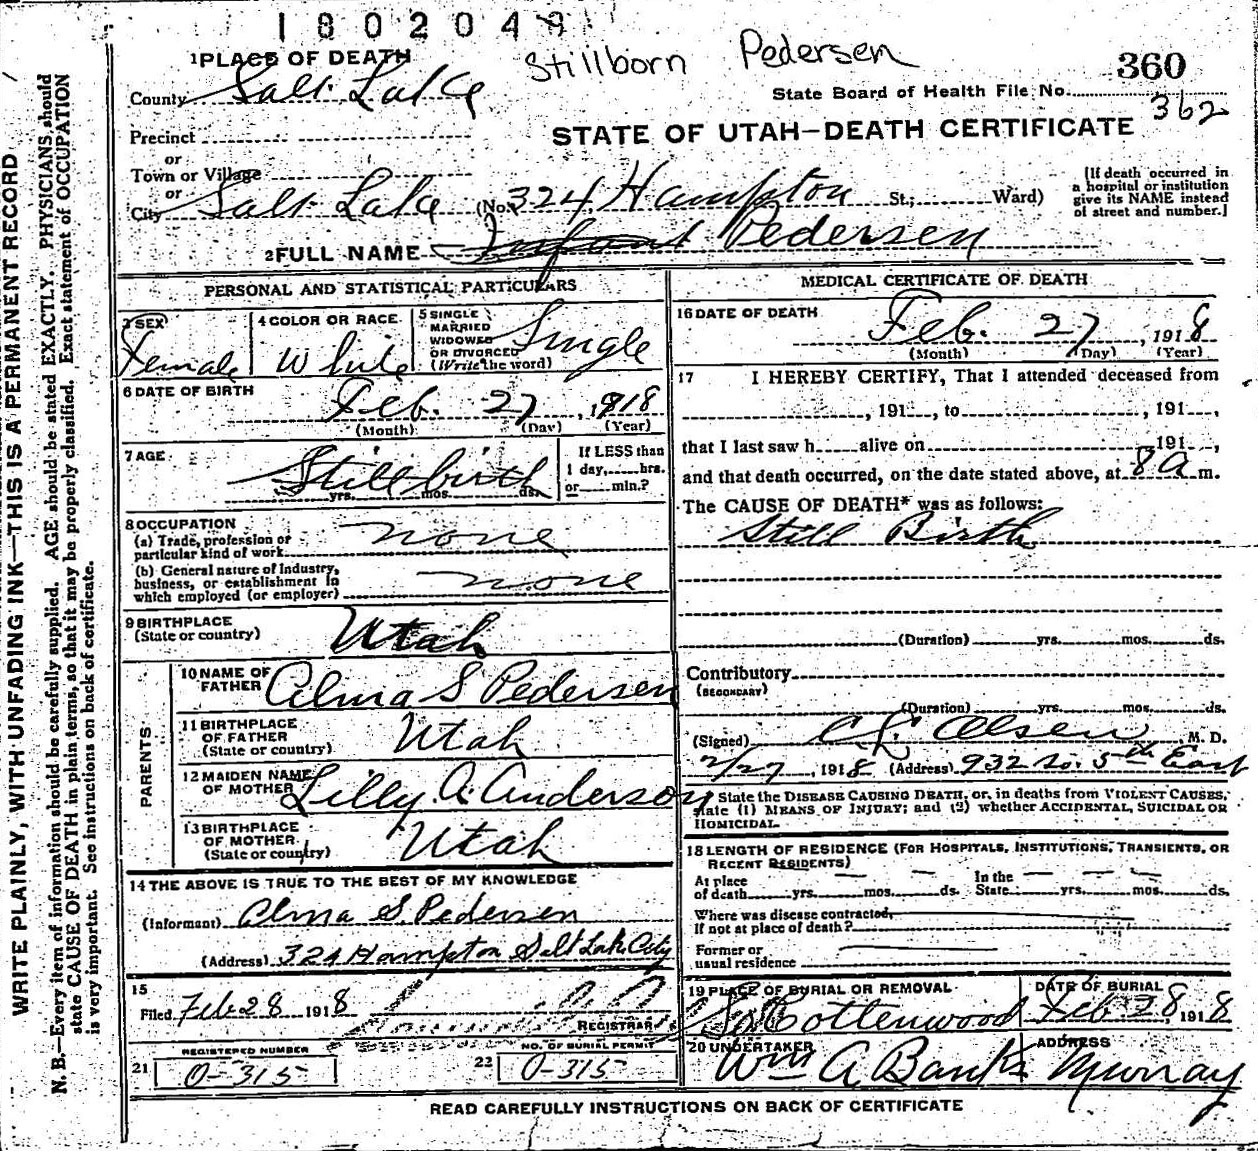 1802049
Stillborn Pedersen
1 PLACE OF DEATH
360
County Salt Lake
State Board of Health File No.
362
Precinct
STATE OF UTAH—DEATH CERTIFICATE
or
Town or Village
or
City Salt Lake (No. 324 Hampton St.; Ward)
[If death occurred in
a hospital or institution
give its NAME instead
of street and number.]
2 FULL NAME Infant Pedersen
PERSONAL AND STATISTICAL PARTICULARS
3 SEX
Female
4 COLOR OR RACE
White
5 SINGLE
MARRIED
WIDOWED
OR DIVORCED
(Write the word)
Single
6 DATE OF BIRTH
Feb. 27, 1918
(Month) (Day) (Year)
7 AGE
Stillbirth
yrs. mos. ds.
If LESS than
1 day, hrs.
or min.?
8 OCCUPATION
(a) Trade, profession or
particular kind of work none
(b) General nature of Industry,
business, or establishment in
which employed (or employer) none
9 BIRTHPLACE
(State or country) Utah
PARENTS
10 NAME OF
FATHER Alma S Pedersen
11 BIRTHPLACE
OF FATHER
(State or country) Utah
12 MAIDEN NAME
OF MOTHER Lilly A. Anderson
13 BIRTHPLACE
OF MOTHER
(State or country) Utah
14 THE ABOVE IS TRUE TO THE BEST OF MY KNOWLEDGE
(Informant) Alma S. Pedersen
(Address) 324 Hampton Salt Lake City
15
Filed Feb 28 1918
REGISTRAR
REGISTERED NUMBER
21 0-315
NO. OF BURIAL PERMIT
22 0-315
MEDICAL CERTIFICATE OF DEATH
16 DATE OF DEATH
Feb. 27, 1918
(Month) (Day) (Year)
17 I HEREBY CERTIFY, That I attended deceased from
, 191 , to , 191 ,
that I last saw h alive on 191 ,
and that death occurred, on the date stated above, at 8 a m.
The CAUSE OF DEATH* was as follows:
Still Birth
(Duration) yrs. mos. ds.
Contributory
(SECONDARY)
(Duration) yrs. mos. ds.
(Signed) C L Olsen, M. D.
2/27, 1918 (Address) 932 So. 5th East
State the DISEASE CAUSING DEATH, or, in deaths from VIOLENT CAUSES,
state (1) MEANS OF INJURY; and (2) whether ACCIDENTAL, SUICIDAL OR
HOMICIDAL.
18 LENGTH OF RESIDENCE (FOR HOSPITALS, INSTITUTIONS, TRANSIENTS, OR
RECENT RESIDENTS)
At place In the
of death yrs. mos. ds. State yrs. mos. ds.
Where was disease contracted,
if not at place of death?
Former or
usual residence
19 PLACE OF BURIAL OR REMOVAL
So Cottenwood
DATE OF BURIAL
Feb 28, 1918
20 UNDERTAKER
Wm A Banks
ADDRESS
Murray
READ CAREFULLY INSTRUCTIONS ON BACK OF CERTIFICATE
WRITE PLAINLY, WITH UNFADING INK—THIS IS A PERMANENT RECORD
N. B.—Every item of information should be carefully supplied. AGE should be stated EXACTLY. PHYSICIANS should
state CAUSE OF DEATH in plain terms, so that it may be properly classified. Exact statement of OCCUPATION
is very important. See instructions on back of certificate.